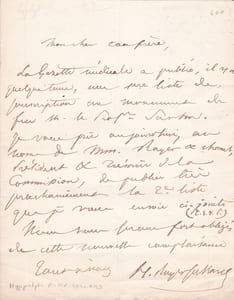 Mon cher confrère,
La Gazette médicale a publié, il y a
quelque temps, une 1ère liste de
souscription au monument de
feu M. le Profr
Je viens aujourd'hui, au
nom de MM. Rayer &
Président & Trésorier de la
Commission, de publier
prochainement la 2e liste
que je vous envoie ci-jointe
Nous vous serons fort obligés
de cette nouvelle complaisance
Tout à vous
H.